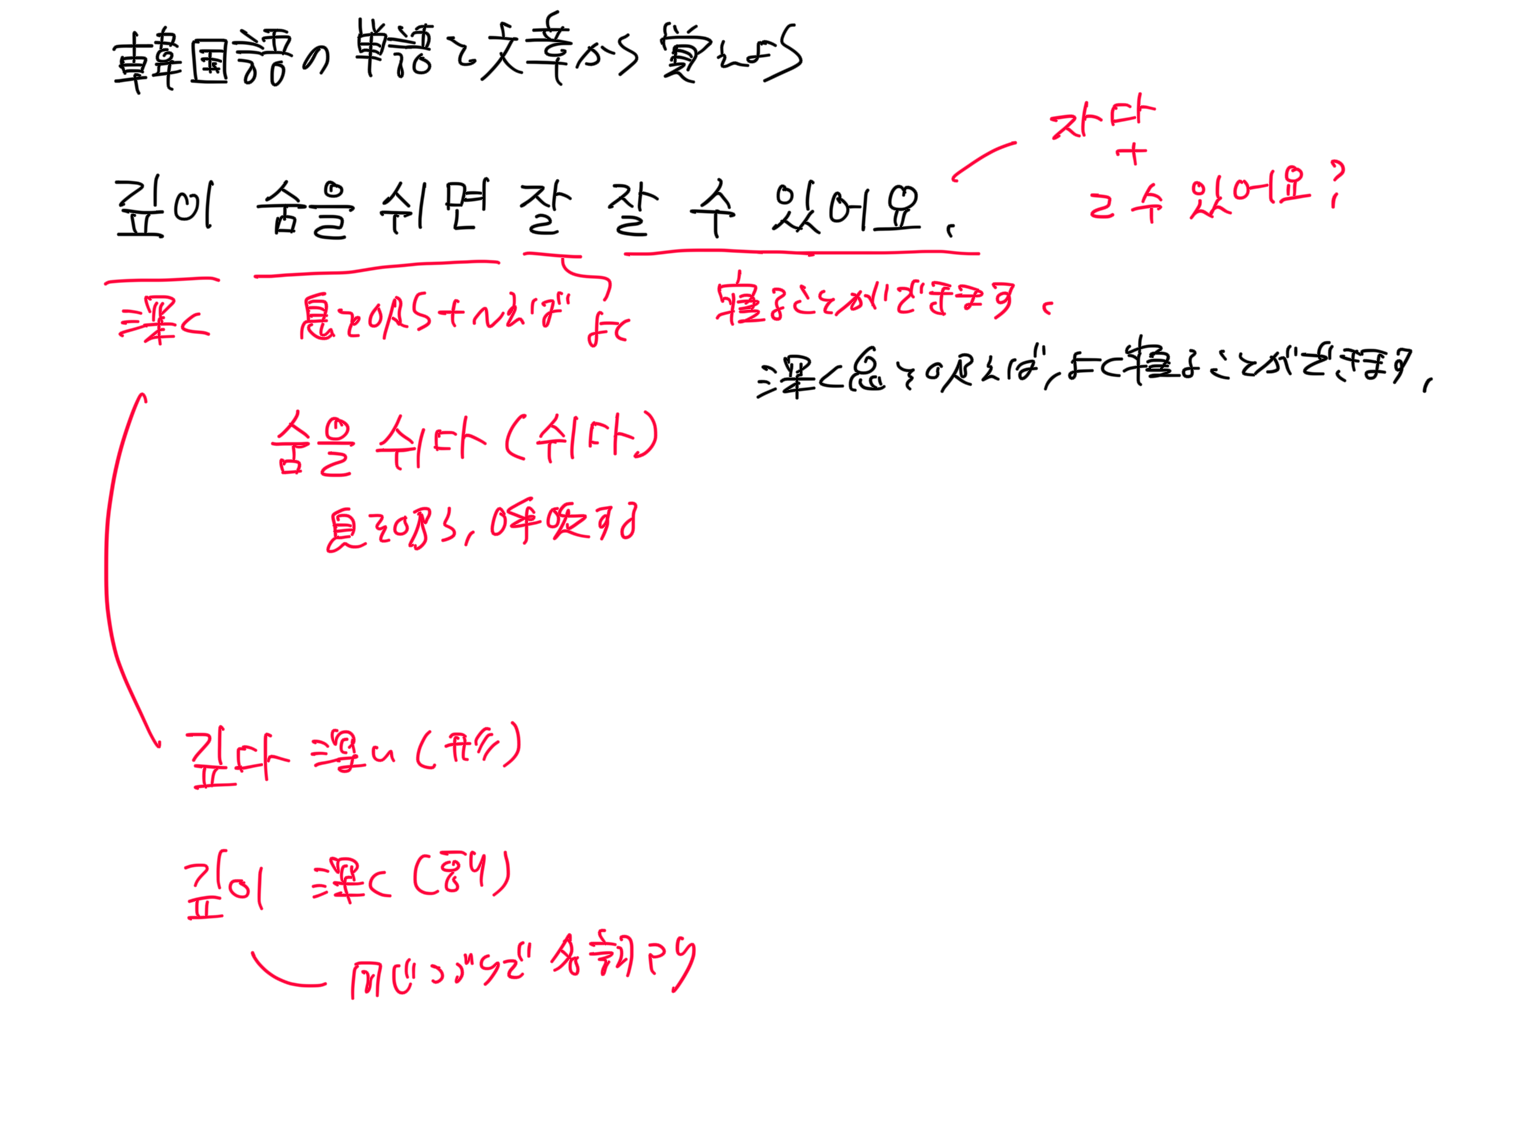 韓国語の単語と文章から覚えよう
자다
+
ㄹ 수 있어요?
깊이 숨을 쉬면 잘 잘 수 있어요.
深く 息を吸う+〜れば よく 寝ることができます.
深く息を吸えば,よく寝ることができます.
숨을 쉬다(쉬다)
息を吸う,呼吸する
깊다 深い(形)
깊이 深く(副)
同じつづりで名詞アリ